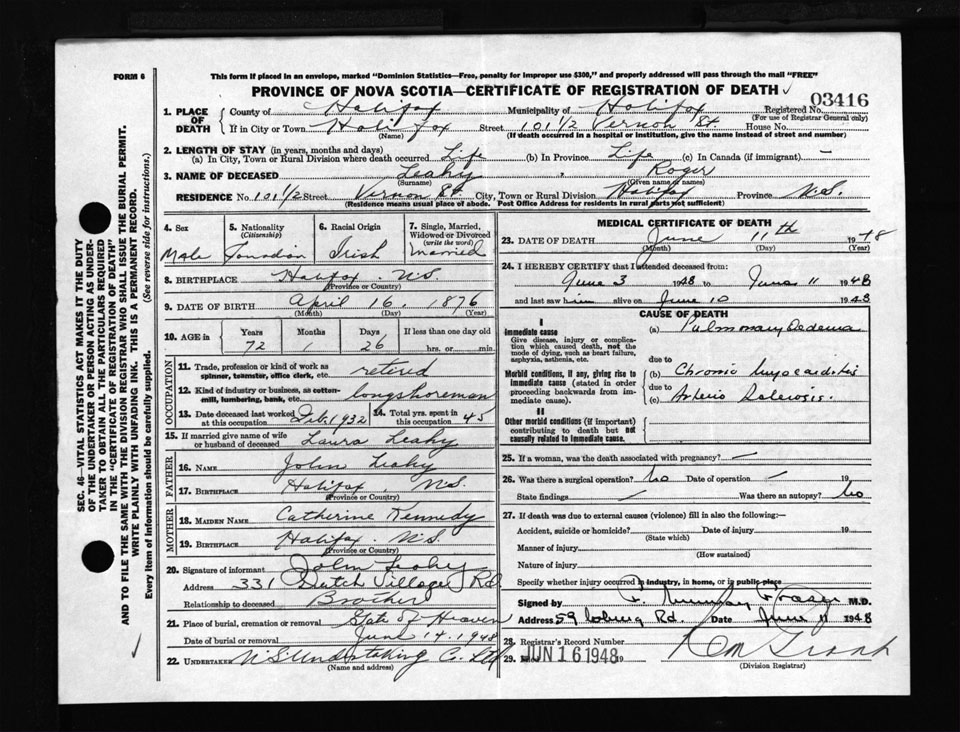 FORM 6
This form if placed in an envelope, marked "Dominion Statistics—Free, penalty for improper use $300," and properly addressed will pass through the mail "FREE"
PROVINCE OF NOVA SCOTIA—CERTIFICATE OF REGISTRATION OF DEATH ✓
03416
1. PLACE OF DEATH
County of Halifax Municipality of Halifax Registered No.
(For use of Registrar General only)
If in City or Town Halifax Street 101 1/2 Vernon St House No.
(Name) (If death occurred in a hospital or institution, give the name instead of street and number)
2. LENGTH OF STAY (in years, months and days)
(a) In City, Town or Rural Division where death occurred Life (b) In Province Life (c) In Canada (if immigrant) —
3. NAME OF DECEASED Leahy, Roger
(Surname) (Given name or names)
RESIDENCE No 101 1/2 Street Vernon St. City, Town or Rural Division Halifax Province N.S.
(Residence means usual place of abode. Post Office Address for residents in rural parts not sufficient)
4. Sex 5. Nationality (Citizenship) 6. Racial Origin 7. Single, Married, Widowed or Divorced (write the word)
Male Canadian Irish Married
8. BIRTHPLACE Halifax N.S.
(Province or Country)
9. DATE OF BIRTH April 16, 1876
(Month) (Day) (Year)
10. AGE in Years Months Days If less than one day old
72 1 26 hrs. or min.
OCCUPATION
11. Trade, profession or kind of work as spinner, teamster, office clerk, etc. retired
12. Kind of industry or business, as cotton-mill, lumbering, bank, etc. longshoreman
13. Date deceased last worked at this occupation Feb. 1932 14. Total yrs. spent in this occupation 45
15. If married give name of wife or husband of deceased Laura Leahy
FATHER
16. NAME John Leahy
17. BIRTHPLACE Halifax N.S.
(Province or Country)
MOTHER
18. MAIDEN NAME Catherine Kennedy
19. BIRTHPLACE Halifax N.S.
(Province or Country)
20. Signature of informant John Leahy
Address 331 Dutch Village Rd
Relationship to deceased Brother
21. Place of burial, cremation or removal Gate of Heaven
Date of burial or removal June 14. 1948
22. UNDERTAKER N.S. Undertaking C. Ltd
(Name and address)
MEDICAL CERTIFICATE OF DEATH
23. DATE OF DEATH June 11th 1948
(Month) (Day) (Year)
24. I HEREBY CERTIFY that I attended deceased from:
June 3 1948 to June 11 1948
and last saw him alive on June 10 1948
CAUSE OF DEATH
I
Immediate cause
Give disease, injury or complication which caused death, not the mode of dying, such as heart failure, asphyxia, asthenia, etc.
(a) Pulmonary Oedema
due to
Morbid conditions, if any, giving rise to immediate cause (stated in order proceeding backwards from immediate cause).
(b) Chronic Myocarditis
due to
(c) Arterio Sclerosis.
II
Other morbid conditions (if important) contributing to death but not causally related to immediate cause.
25. If a woman, was the death associated with pregnancy? —
26. Was there a surgical operation? No Date of operation / 19
State findings / Was there an autopsy? No
27. If death was due to external causes (violence) fill in also the following:—
Accident, suicide or homicide? Date of injury 19
(State which)
Manner of injury
(How sustained)
Nature of injury
Specify whether injury occurred in industry, in home, or in public place
Signed by M.D.
Address 59 Coburg Rd. Date June 11 1948
28. Registrar's Record Number
29. JUN 16 1948 19
(Division Registrar)
SEC. 46—VITAL STATISTICS ACT MAKES IT THE DUTY
OF THE UNDERTAKER OR PERSON ACTING AS UNDER-
TAKER TO OBTAIN ALL THE PARTICULARS REQUIRED
IN THE "CERTIFICATE OF REGISTRATION OF DEATH"
AND TO FILE THE SAME WITH THE DIVISION REGISTRAR WHO SHALL ISSUE THE BURIAL PERMIT.
WRITE PLAINLY WITH UNFADING INK. THIS IS A PERMANENT RECORD.
Every item of information should be carefully supplied. (See reverse side for instructions.)